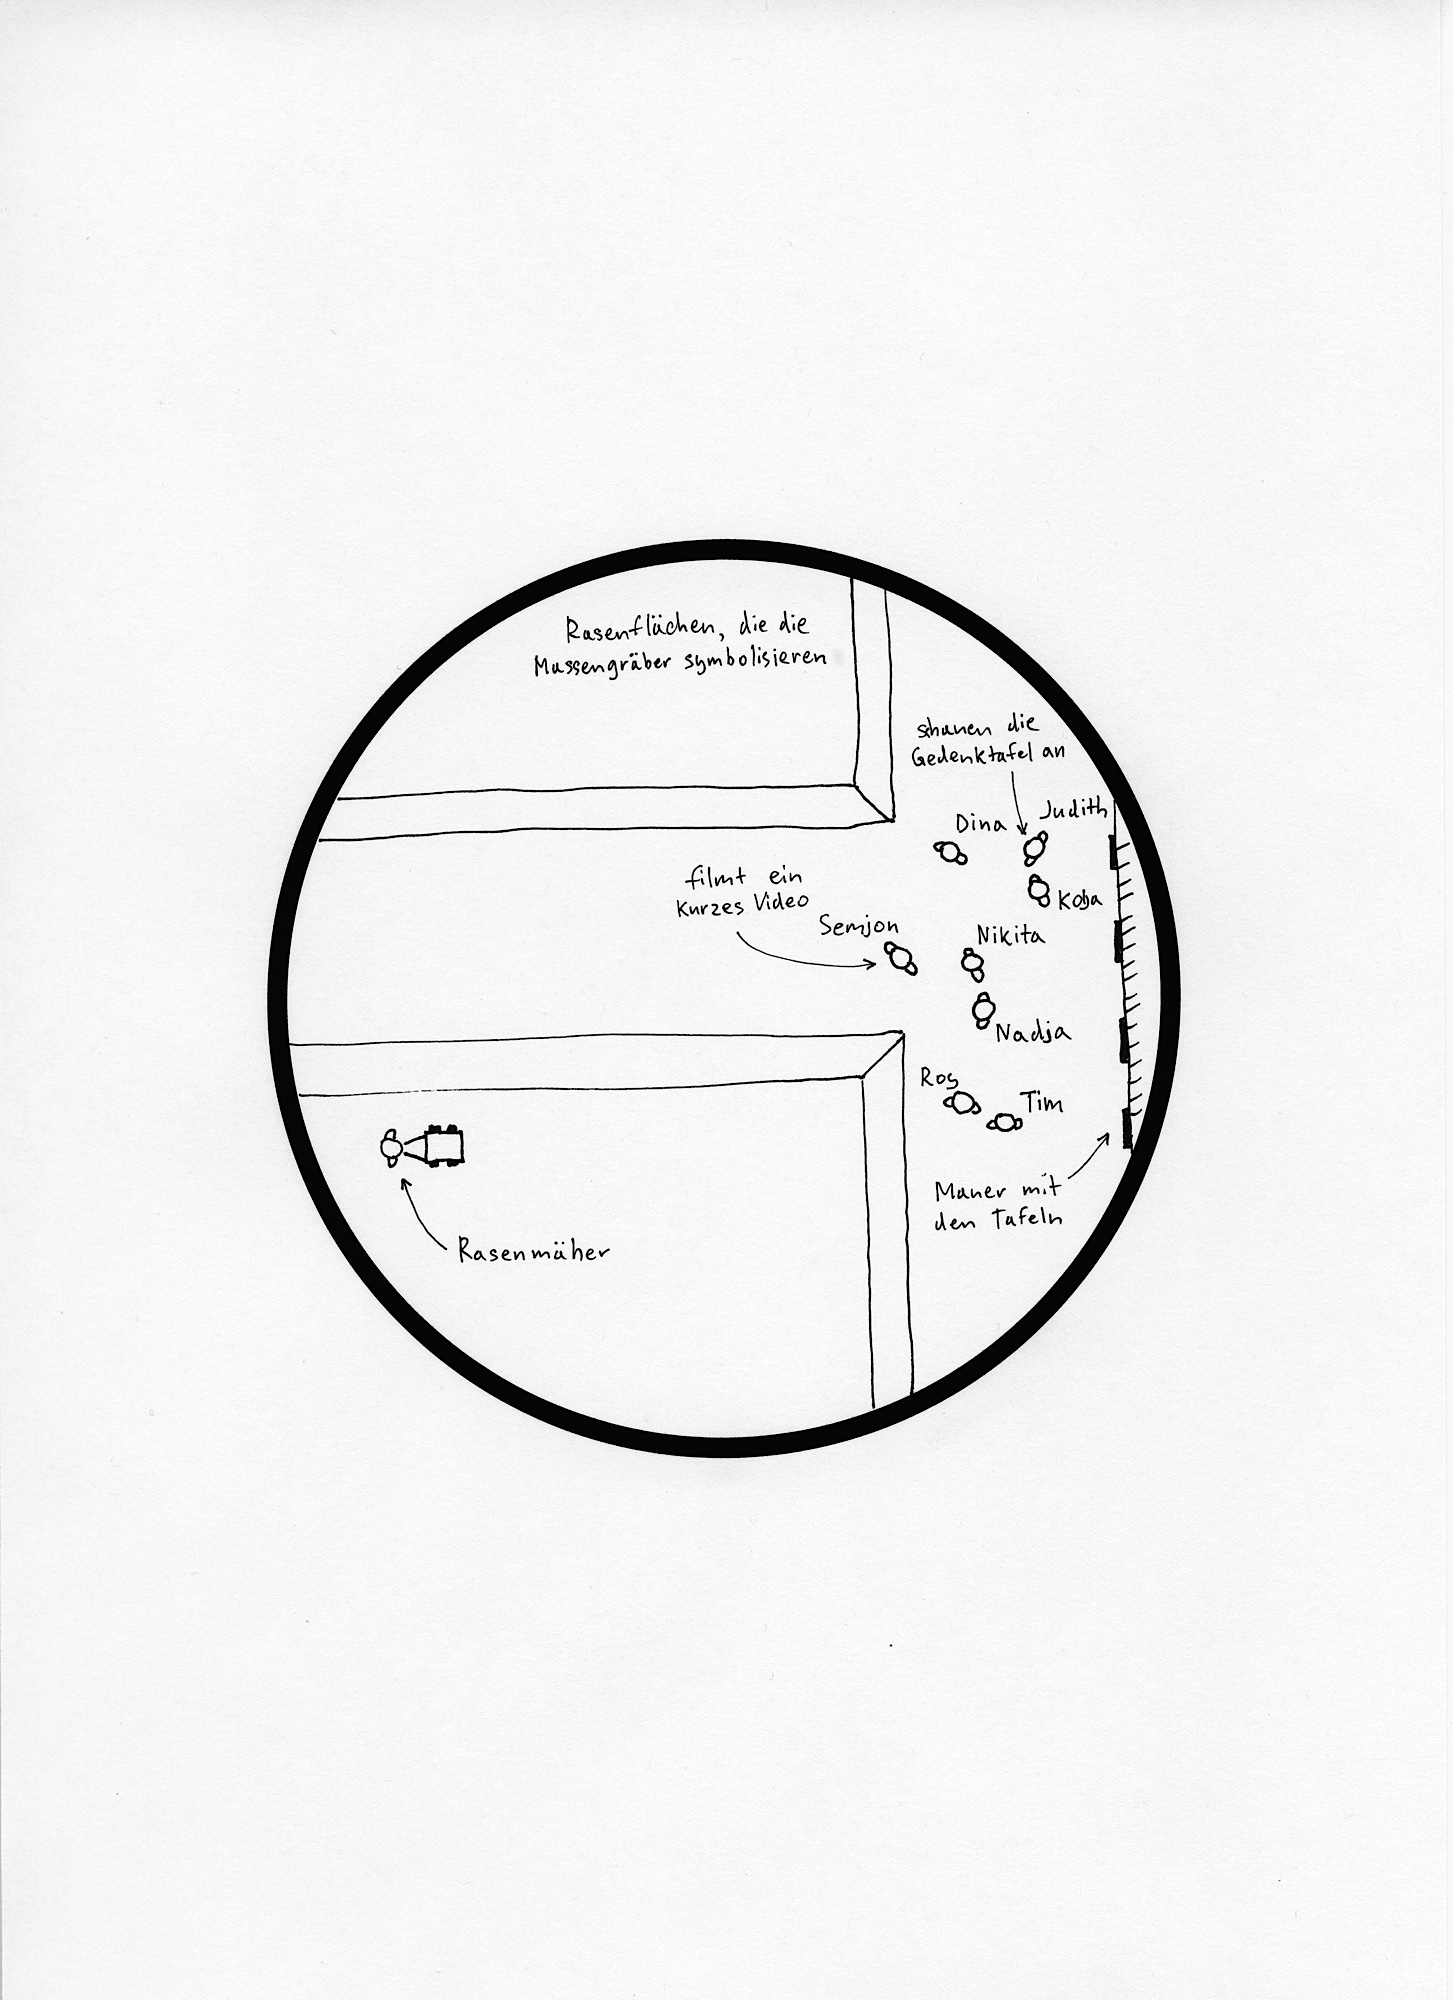 Rasenflächen, die die
Massengräber symbolisieren
schauen die
Gedenktafel an
Judith
Dina
filmt ein
kurzes Video
Koba
Semjon
Nikita
Nadja
Ros
Tim
Mauer mit
den Tafeln
Rasenmäher